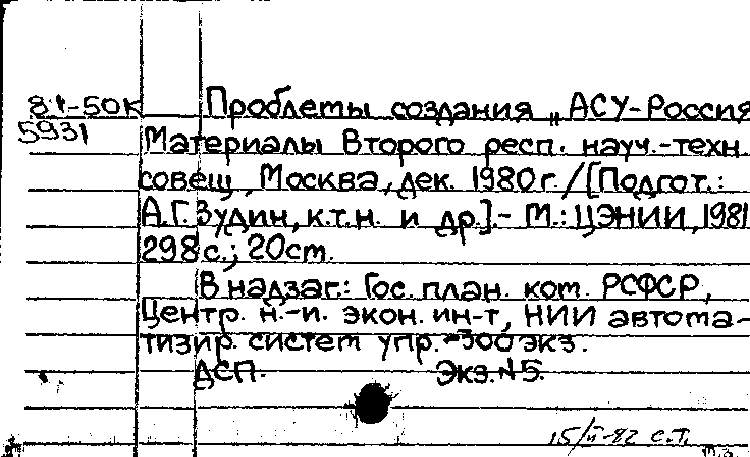 81-50к Проблемы создания „АСУ-Россия
5931 Материалы Второго респ. науч.-техн.
совещ, Москва, дек. 1980г./[Подгот.:
А.Г. Зудин, к.т.н. и др.].- М.: ЦЭНИИ, 1981
298с.; 20ст.
В надзаг.: Гос. план. ком. РСФСР,
Центр. н.-и. экон. ин-т, НИИ автома-
тизир. систем упр.-300 экз.
ДСП. Экз.№5.
15/II-82 с.т.